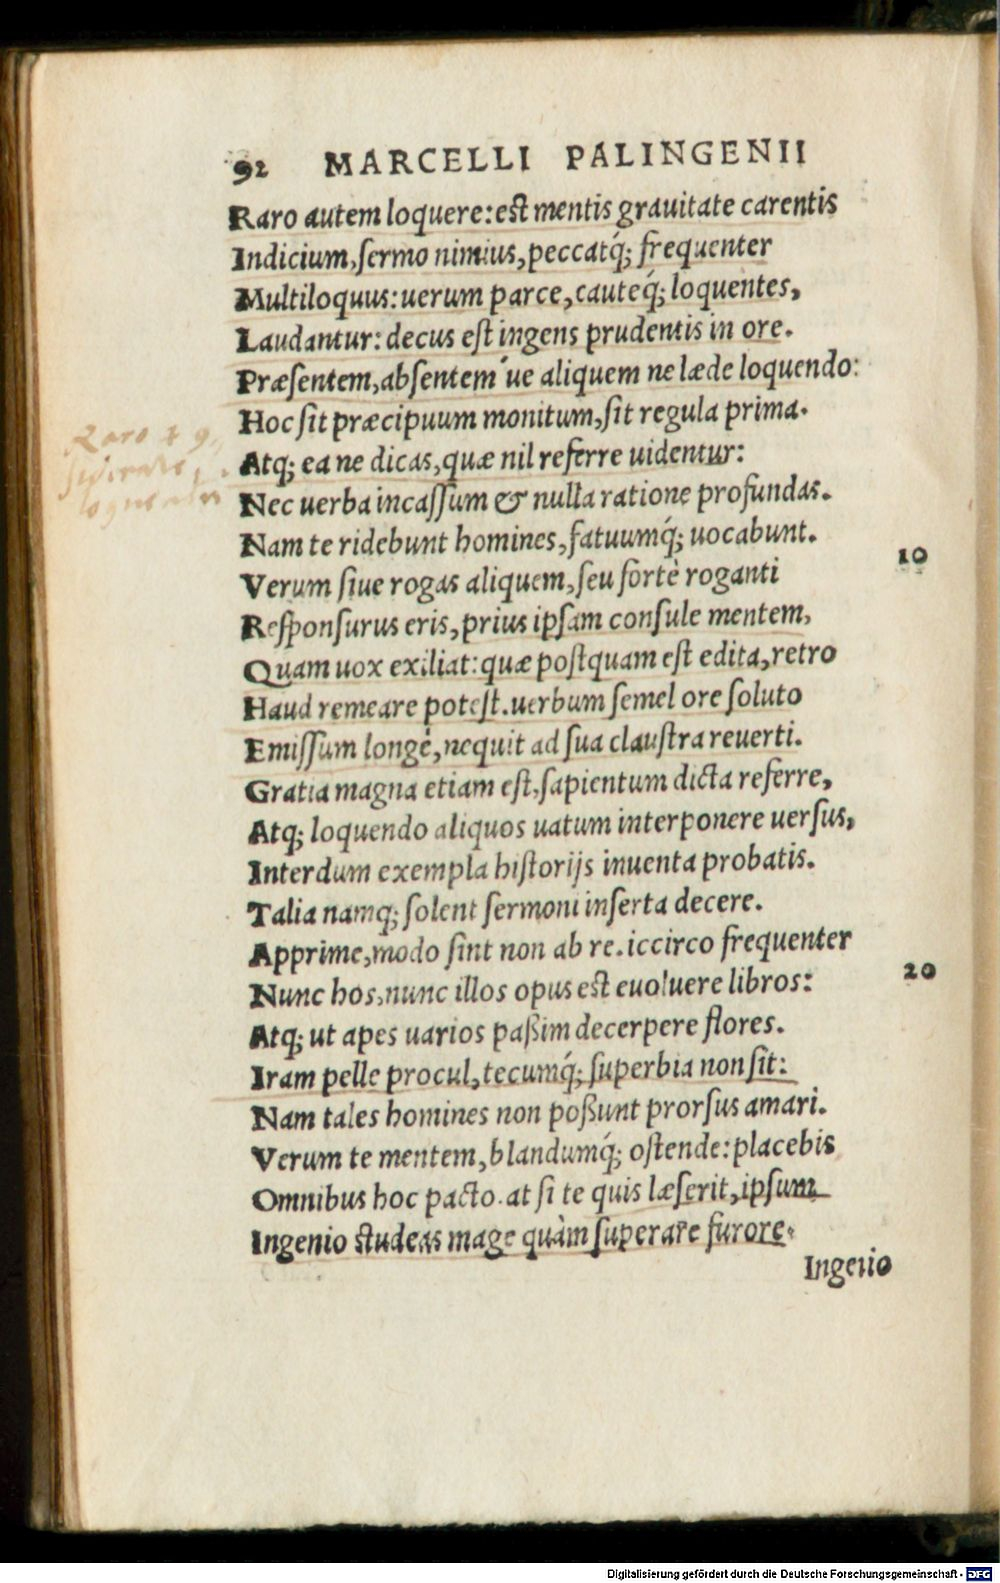 92 MARCELLI PALINGENII
Raro autem loquere: est mentis grauitate carentis
Indicium, sermo nimius, peccatq́; frequenter
Multiloquus: uerum parce, cauteq́; loquentes,
Laudantur: decus est ingens prudentis in ore.
Præsentem, absentem ́ue aliquem ne læde loquendo:
Hoc sit præcipuum monitum, sit regula prima.
Atq; ea ne dicas, quæ nil referre uidentur:
Nec uerba incassum & nulla ratione profundas.
Nam te ridebunt homines, fatuumq́; uocabunt.
Verum siue rogas aliquem, seu fortè roganti 10
Responsurus eris, prius ipsam consule mentem,
Quam uox exiliat: quæ postquam est edita, retro
Haud remeare potest. uerbum semel ore soluto
Emissum longè, nequit ad sua claustra reuerti.
Gratia magna etiam est, sapientum dicta referre,
Atq; loquendo aliquos uatum interponere uersus,
Interdum exempla historijs inuenta probatis.
Talia namq; solent sermoni inserta decere.
Apprime, modo sint non ab re. iccirco frequenter
Nunc hos, nunc illos opus est euoluere libros: 20
Atq; ut apes uarios paßim decerpere flores.
Iram pelle procul, tecumq́; superbia non sit:
Nam tales homines non poßunt prorsus amari.
Verum te mentem, blandumq́; ostende: placebis
Omnibus hoc pacto. at si te quis læserit, ipsum
Ingenio studeas mage quàm superare furore.
Ingenio
Raro
Digitalisierung gefördert durch die Deutsche Forschungsgemeinschaft - DFG